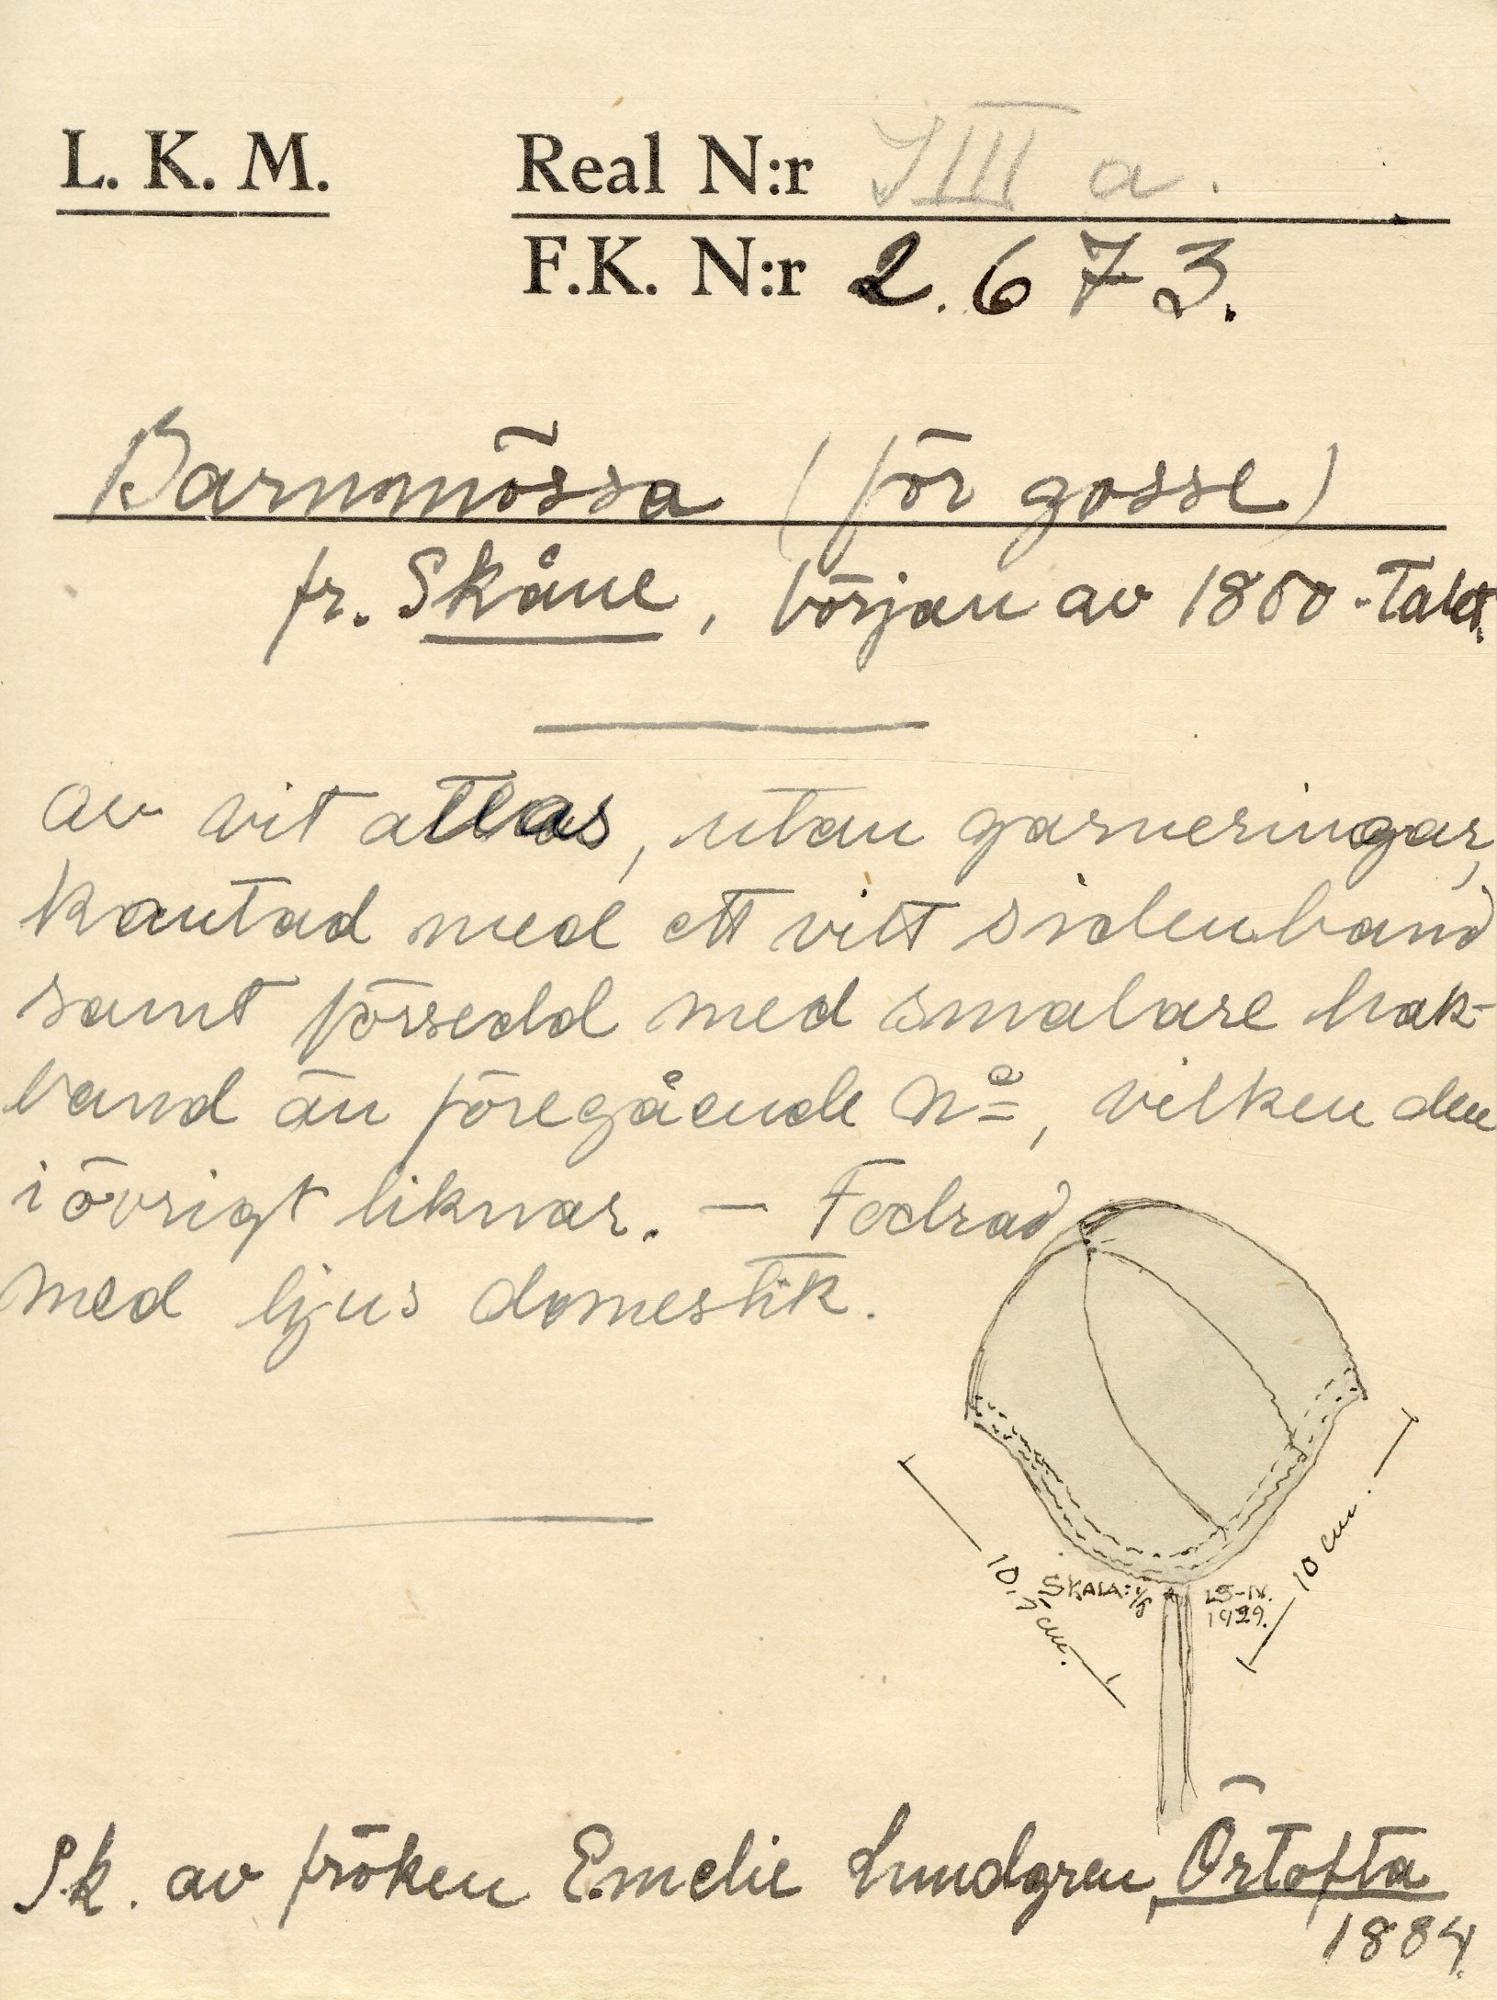 L. K. M. Real N:r VIII a.
F.K. N:r 2.673.
Barnmössa (för gosse)
fr. Skåne, början av 1800-talet.
av vit atlas, utan garneringar,
kantad med ett vitt sidenband
samt försedd med smalare hak-
band än föregående No, vilken den
i övrigt liknar. — Fodrad
med ljus domestik.
10 cm.
10,7 cm.
SKALA: 1/5
LS-IV.
1929.
Sk. av fröken Emelie Lundgren, Örtofta
1884.